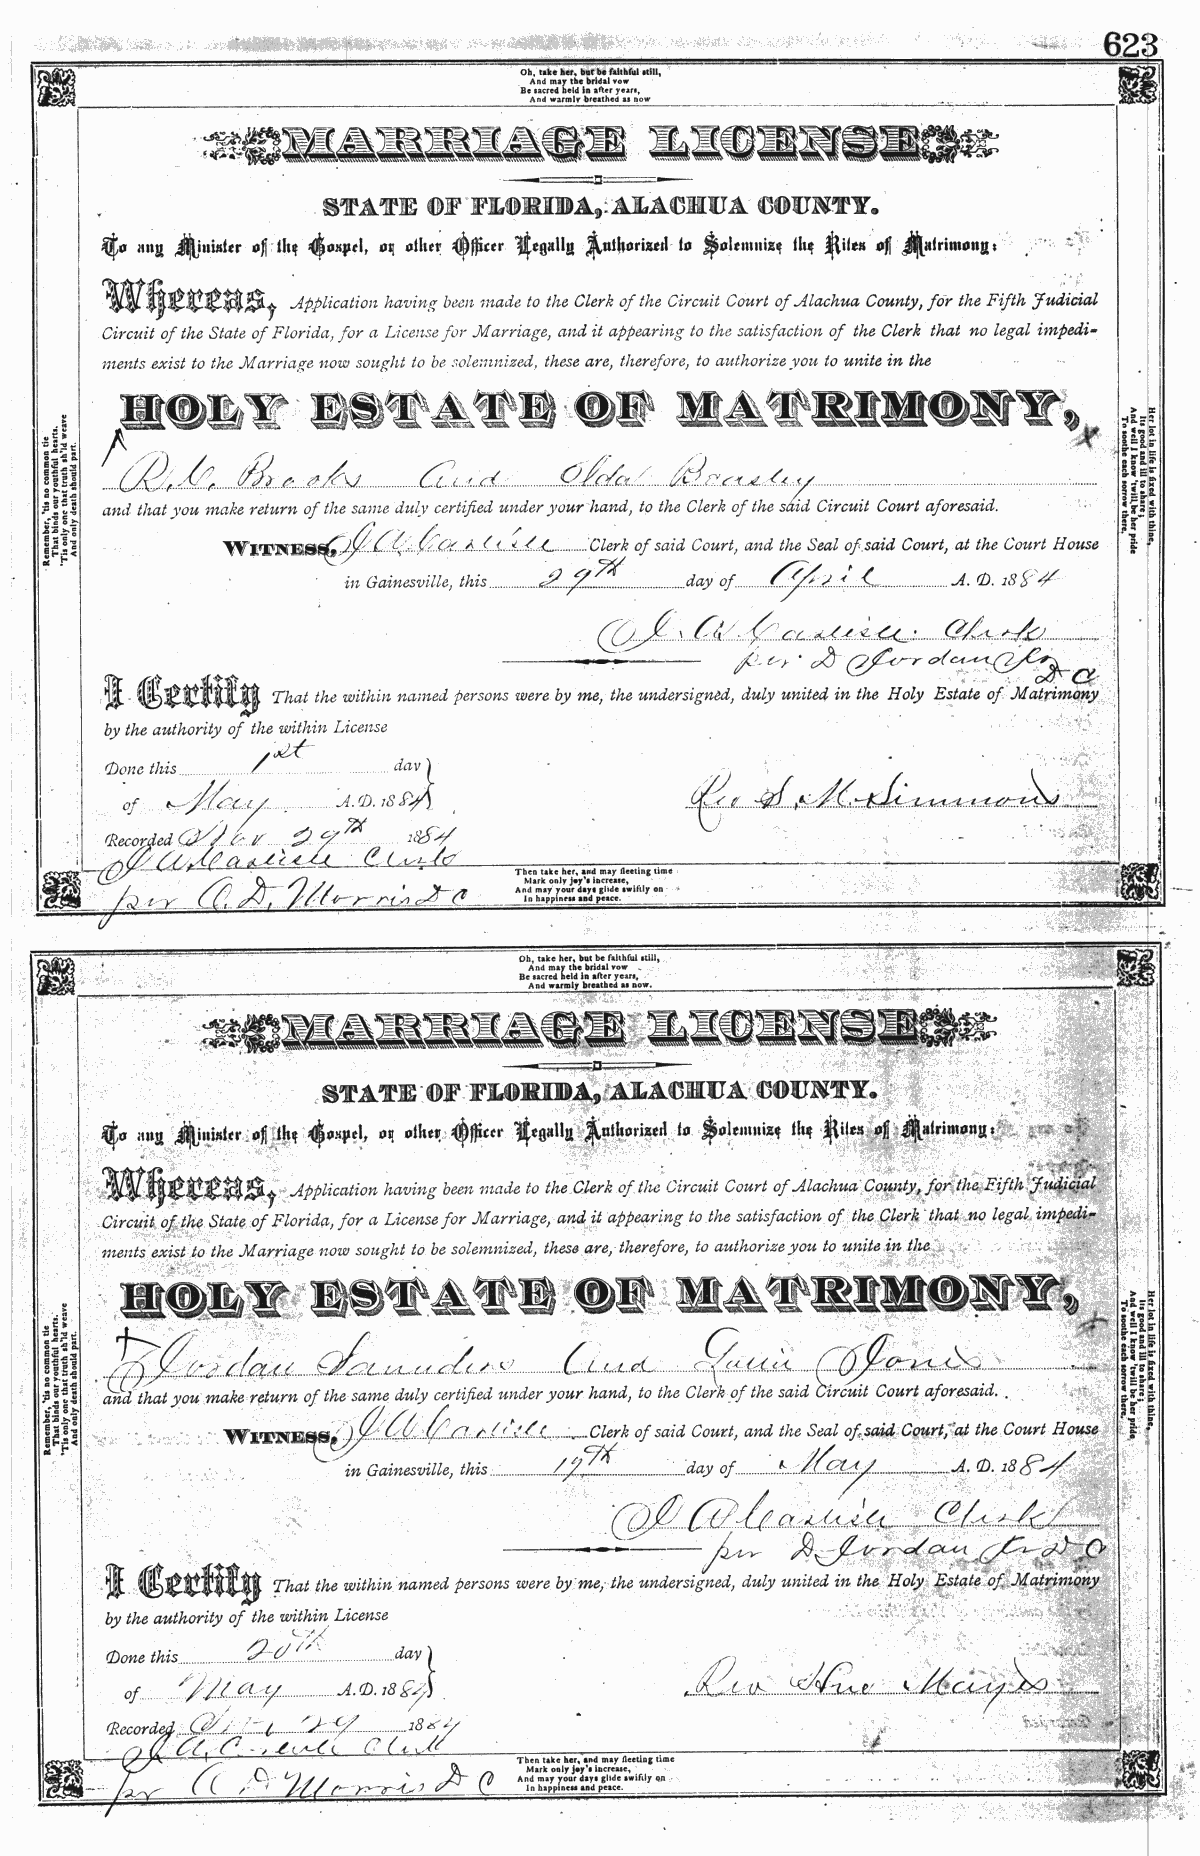 623
Oh, take her, but be faithful still,
And may the bridal vow
Be sacred held in after years,
And warmly breathed as now
MARRIAGE LICENSE
STATE OF FLORIDA, ALACHUA COUNTY.
To any Minister of the Gospel, or other Officer Legally Authorized to Solemnize the Rites of Matrimony:
Whereas, Application having been made to the Clerk of the Circuit Court of Alachua County, for the Fifth Judicial
Circuit of the State of Florida, for a License for Marriage, and it appearing to the satisfaction of the Clerk that no legal impedi-
ments exist to the Marriage now sought to be solemnized, these are, therefore, to authorize you to unite in the
HOLY ESTATE OF MATRIMONY,
R. C. Brooks and Beasley
and that you make return of the same duly certified under your hand, to the Clerk of the said Circuit Court aforesaid.
WITNESS, J A Carlisle Clerk of said Court, and the Seal of said Court, at the Court House
in Gainesville, this 29th day of April A. D. 1884
J. A. Carlisle. Clerk
per D Jordan Jr
D C
I Certify That the within named persons were by me, the undersigned, duly united in the Holy Estate of Matrimony
by the authority of the within License
Done this 1st day
of May A. D. 1884
Rev S. M. Simmons
Recorded Nov 29th 1884
J A Carlisle Clerk
per A. D. Morris D C
Then take her, and may fleeting time
Mark only joy's increase,
And may your days glide swiftly on
In happiness and peace.
Remember, 'tis no common tie
That binds our youthful hearts.
'Tis only one that truth sh'ld weave
And only death should part.
Her lot in life is fixed with thine,
Its good and ill to share;
And well I know 'twill be her pride
To soothe each sorrow there.
Oh, take her, but be faithful still,
And may the bridal vow
Be sacred held in after years,
And warmly breathed as now.
MARRIAGE LICENSE
STATE OF FLORIDA, ALACHUA COUNTY.
To any Minister of the Gospel, or other Officer Legally Authorized to Solemnize the Rites of Matrimony:
Whereas, Application having been made to the Clerk of the Circuit Court of Alachua County, for the Fifth Judicial
Circuit of the State of Florida, for a License for Marriage, and it appearing to the satisfaction of the Clerk that no legal impedi-
ments exist to the Marriage now sought to be solemnized, these are, therefore, to authorize you to unite in the
HOLY ESTATE OF MATRIMONY,
Jordan Saunders and Jones
and that you make return of the same duly certified under your hand, to the Clerk of the said Circuit Court aforesaid.
WITNESS, J A Carlisle Clerk of said Court, and the Seal of said Court, at the Court House
in Gainesville, this 19th day of May A. D. 1884
J A Carlisle Clerk
per D Jordan Jr D C
I Certify That the within named persons were by me, the undersigned, duly united in the Holy Estate of Matrimony
by the authority of the within License
Done this 20th day
of May A. D. 1884
Rev Mayes
Recorded 29 1884
J A Carlisle Clerk
per A D Morris D C
Then take her, and may fleeting time
Mark only joy's increase,
And may your days glide swiftly on
In happiness and peace.
Remember, 'tis no common tie
That binds our youthful hearts.
'Tis only one that truth sh'ld weave
And only death should part.
Her lot in life is fixed with thine,
Its good and ill to share;
And well I know 'twill be her pride,
To soothe each sorrow there.